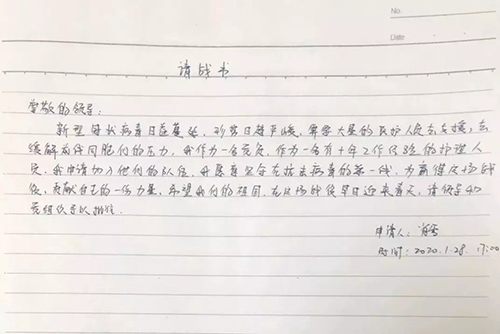 No.
Date
请战书
尊敬的领导:
新型冠状病毒日益蔓延,形势日趋严峻,需要大量的医护人员去支援,去
缓解前线同胞们的压力,我作为一名党员,作为一名有十年工作经验的护理人
员,我申请加入他们的队伍,我愿意安在抗击病毒的第一线,为赢得这场战
役,贡献自己的一份力量,希望我们的祖国,在这场战役早日迎来春天,请领导和
党组织予以批准.
申请人:
时间:2020.1.28. 17:00